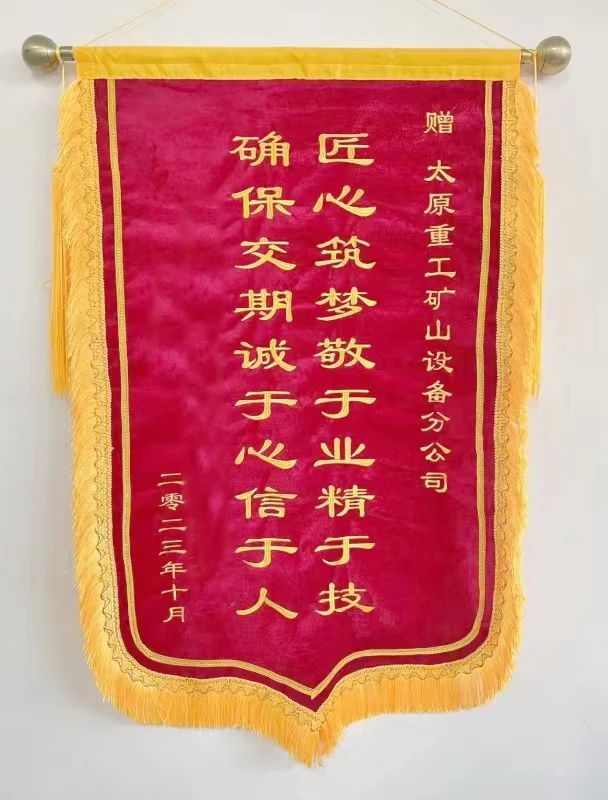 赠 太原重工矿山设备分公司
匠心筑梦敬于业精于技
确保交期诚于心信于人
二零二三年十月